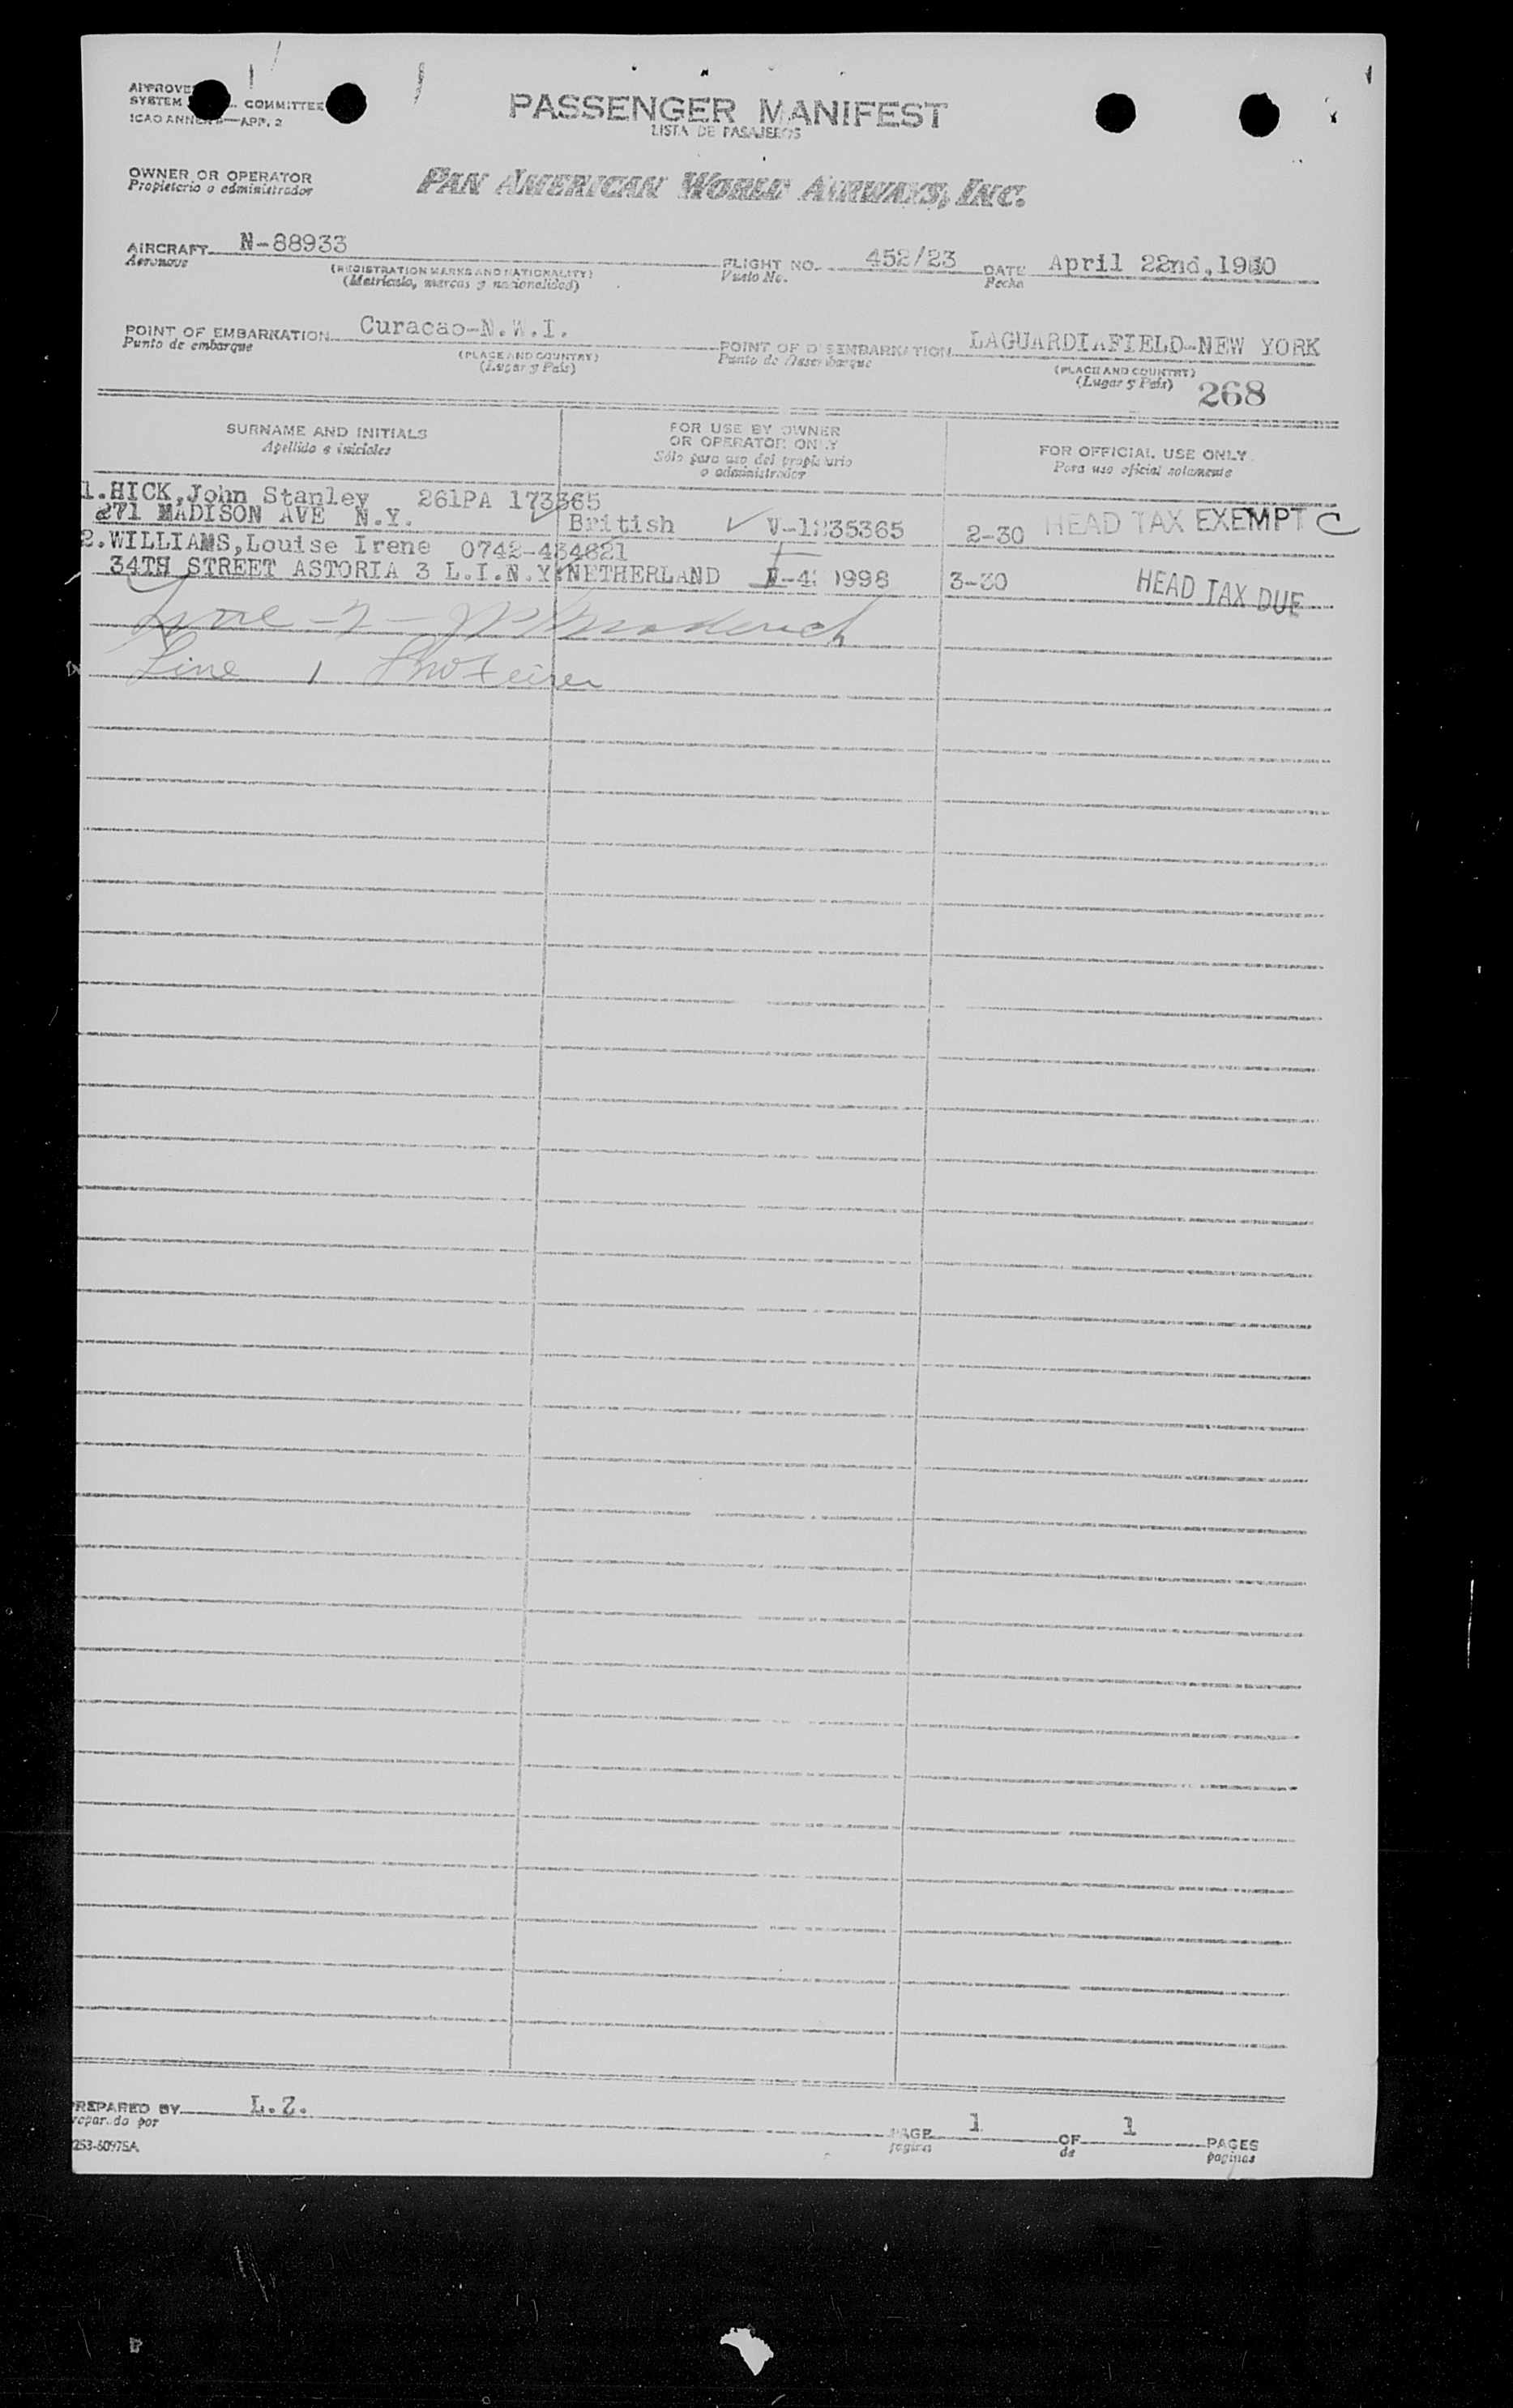 APPROVE
SYSTEM COMMITTEE
ICAO ANNEX —APP. 2
PASSENGER MANIFEST
LISTA DE PASAJEROS
OWNER OR OPERATOR
Propietario o administrador
PAN AMERICAN WORLD AIRWAYS, INC.
AIRCRAFT N-88933
Aeronave
(REGISTRATION MARKS AND NATIONALITY)
(Matrícula, marcas y nacionalidad)
FLIGHT NO. 452/23
Vuelo No.
DATE April 22nd,1950
Fecha
POINT OF EMBARKATION Curacao-N.W.I.
Punto de embarque
(PLACE AND COUNTRY)
(Lugar y País)
POINT OF DISEMBARKATION LAGUARDIAFIELD-NEW YORK
Punto de Desembarque
(PLACE AND COUNTRY)
(Lugar y País) 268
SURNAME AND INITIALS
Apellido e iniciales
FOR USE BY OWNER
OR OPERATOR ONLY
Sólo para uso del propietario
o administrador
FOR OFFICIAL USE ONLY
Para uso oficial solamente
1.HICK,John Stanley 261PA 173365
271 MADISON AVE N.Y. British V-1235365 2-30 HEAD TAX EXEMPT C
2.WILLIAMS,Louise Irene 0742-434621
34TH STREET ASTORIA 3 L.I.N.Y. NETHERLAND 998 3-30 HEAD TAX DUE
Line 2
Line 1
PREPARED BY L.Z.
reparado por
PAGE 1 OF 1 PAGES
página de paginas
253-60975A